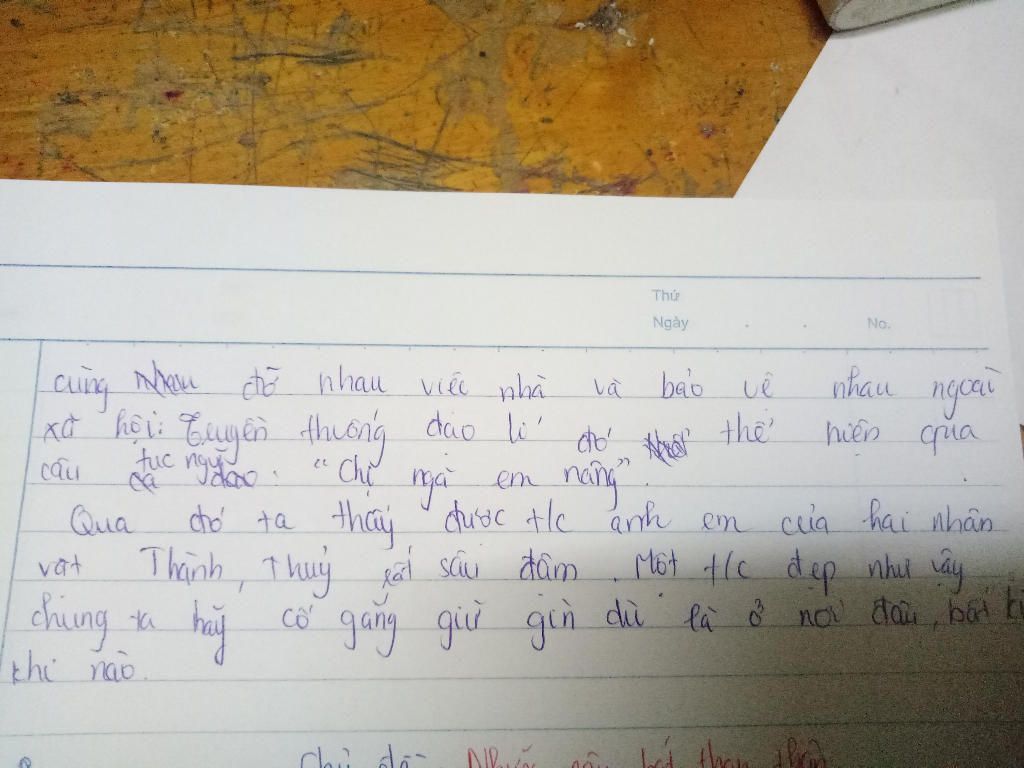 Thứ
Ngày . . No.
cùng đỡ nhau việc nhà và bảo vệ nhau ngoài
xã hội: Truyền thống đạo lí đó thể hiện qua
câu tục ngữ: "Chị ngã em nâng".
Qua đó ta thấy được t/c anh em của hai nhân
vật Thành, Thuỷ rất sâu đậm. Một t/c đẹp như vậy
chúng ta hãy cố gắng giữ gìn dù là ở nơi đâu, bất kì
khi nào.
Chủ đề Những câu hát than thân